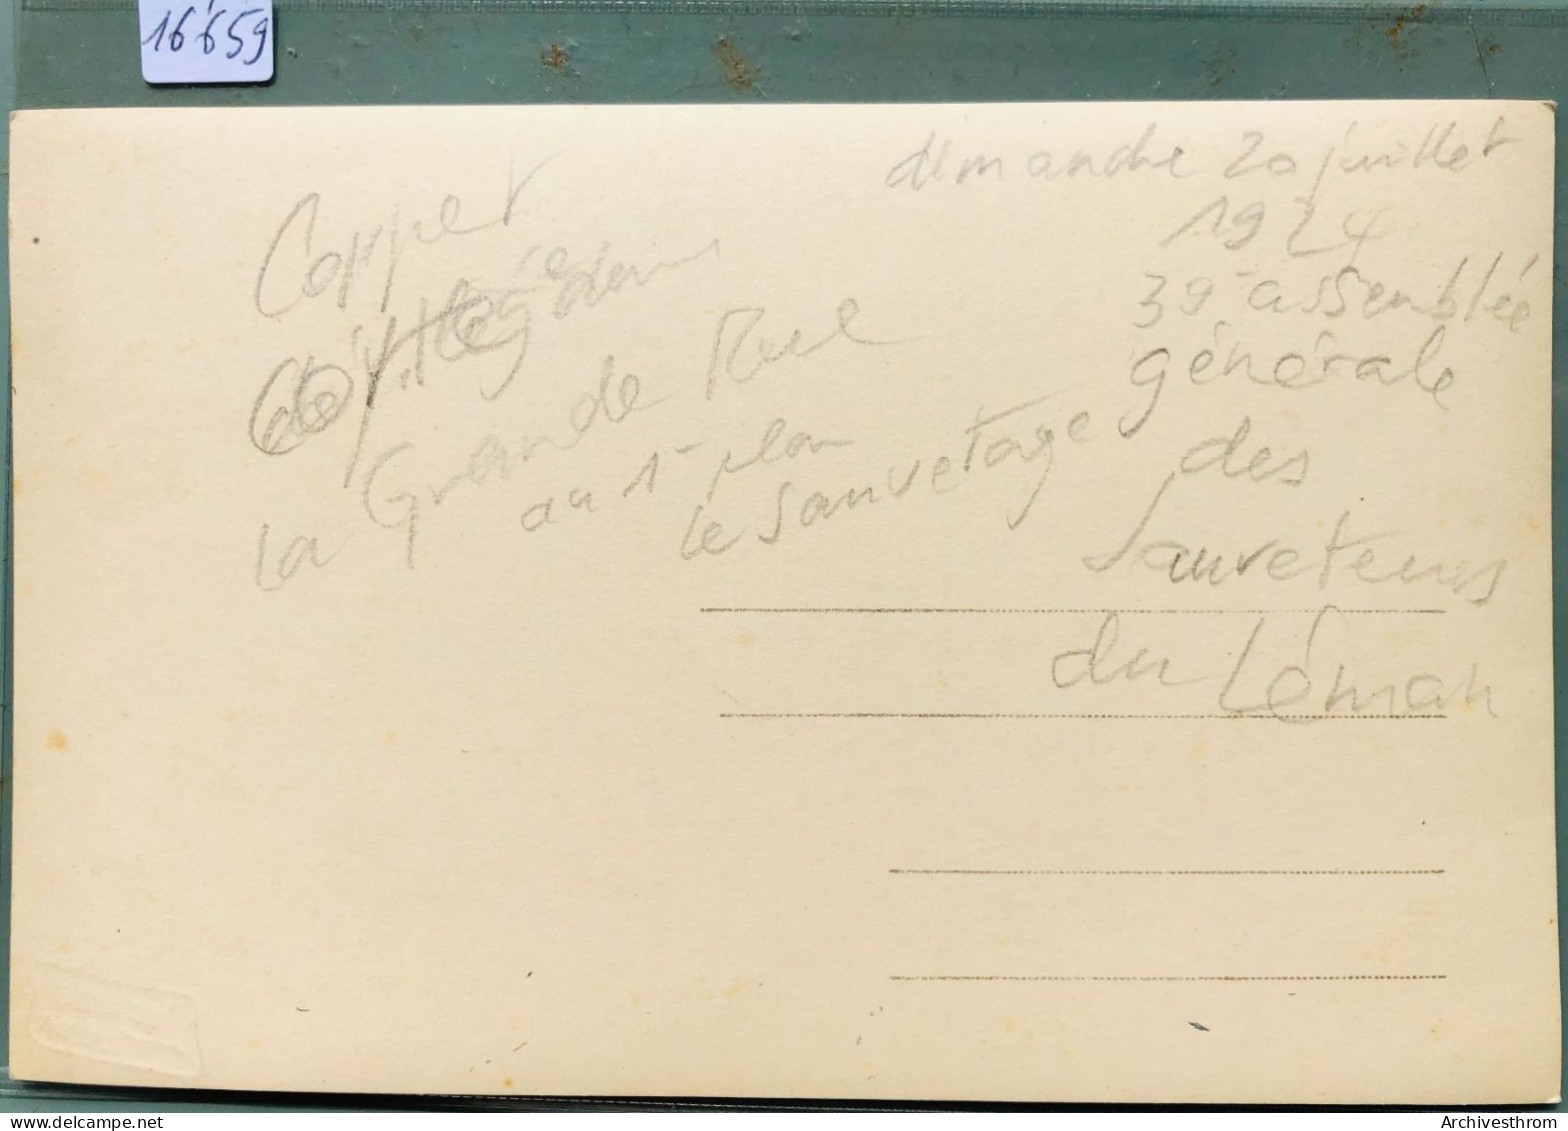 16'659
Coppet
cortège dans
la Grande Rue
au 1er plan
le Sauvetage
dimanche 20 juillet
1924
39e assemblée
générale
des
Sauveteurs
du Léman
delcampe.net
Archivesthrom